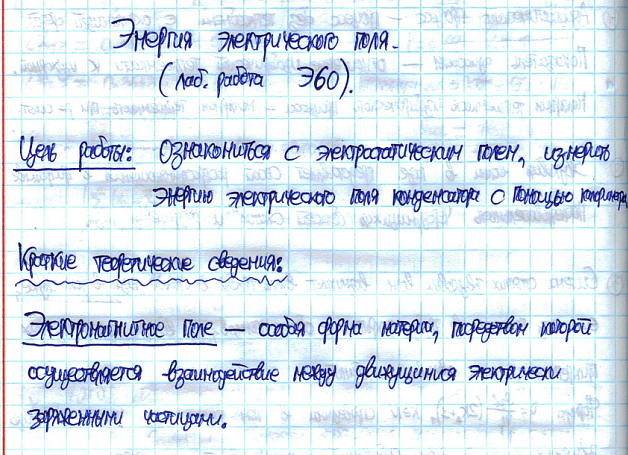 Энергия электрического поля.
(лаб. работа Э60).
Цель работы: Ознакомиться с электростатическим полем, измерить
энергию электрического поля конденсатора с помощью калориметра
Краткие теоретические сведения:
Электромагнитное поле — особая форма материи, посредством которой
осуществляется взаимодействие между движущимися электрически
заряженными частицами.